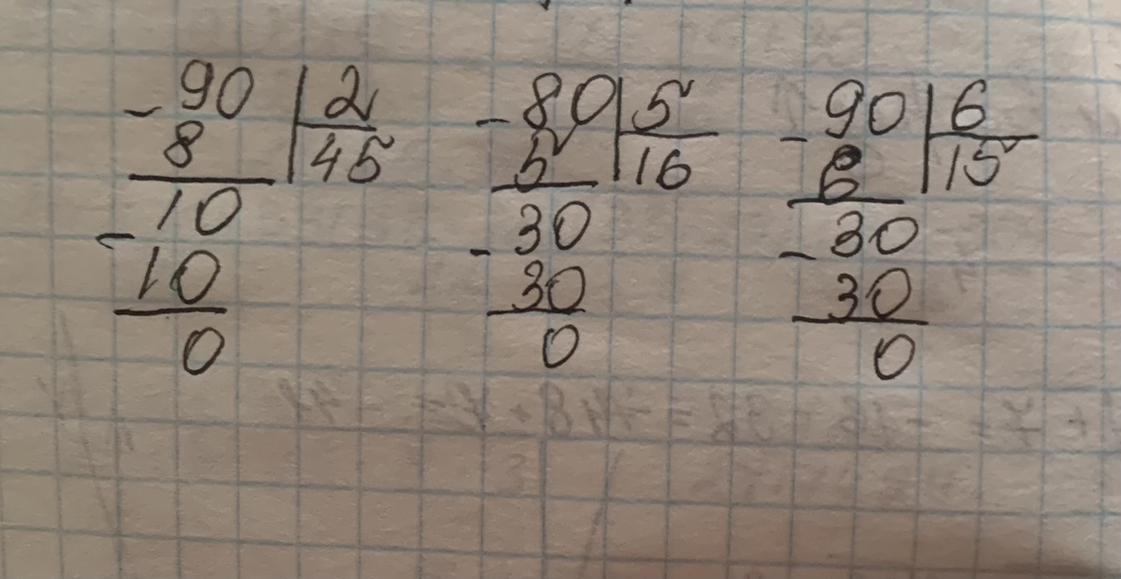 - 90 | 2
8 | 45
- 10
10
0
- 80 | 5
5 | 16
- 30
30
0
- 90 | 6
6 | 15
- 30
30
0